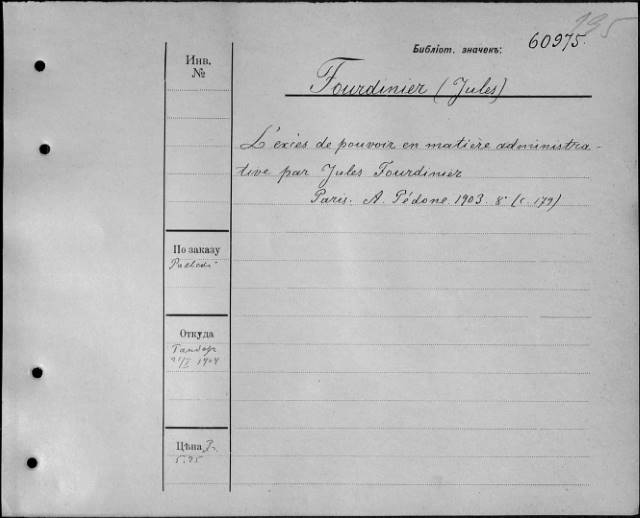 195
Библіот. значекъ: 60975.
Инв.
№
Fourdinier (Jules)
L'exiès de pouvoir en matière administra-
tive par Jules Fourdinier
Paris. A. Pédone. 1903. 8° (c. 179)
По заказу
Откуда
1904
Цѣна Р.
5.95